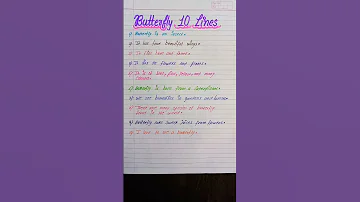 Butterfly 10 Lines
1) Butterfly is an Insect.
2) It has four beautiful wings.
3) It has
4) It on flowers and plants.
5) It is of blue, pink, yellow, and many colours.
6) Butterfly is born from a caterpillar.
7) we see butterflies in gardens and
8) There are many species of butterfly found in the world.
9) Butterfly sucks sweet juices from flowers.
10) I love to see a butterfly.